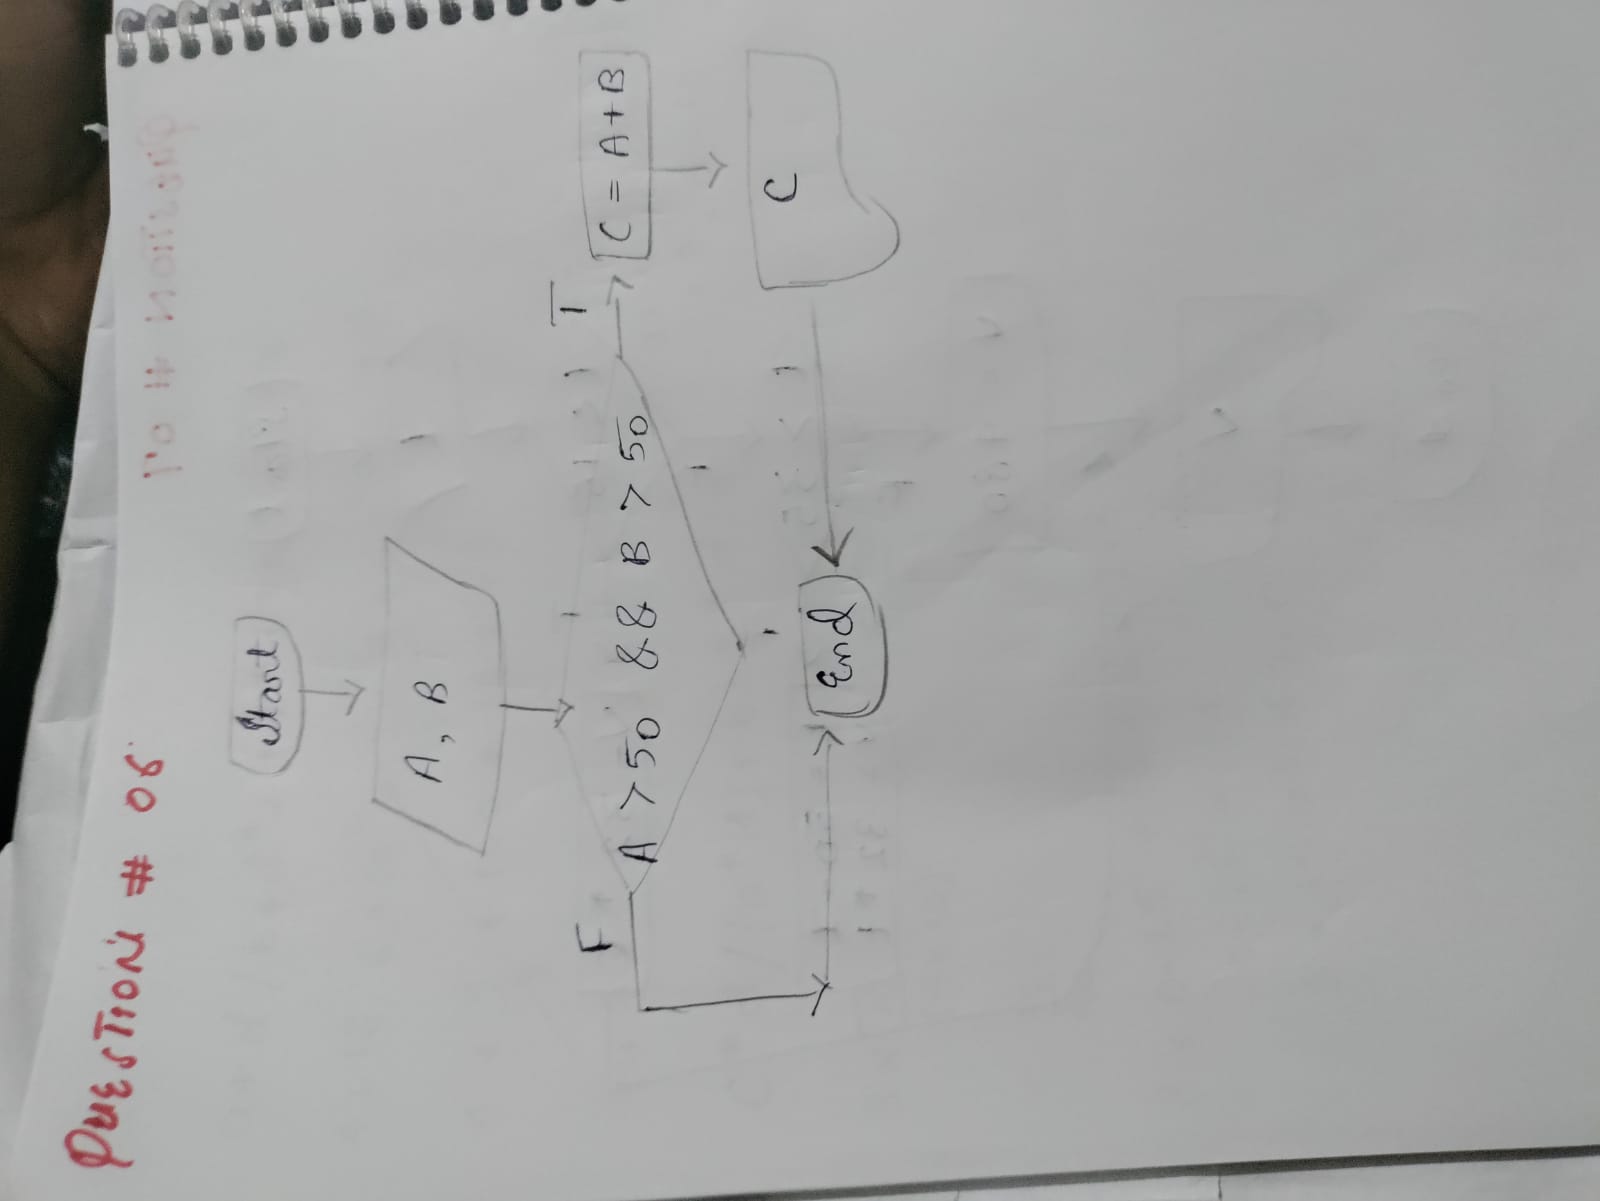 QUESTION # 06
Start
A, B
A > 50 && B > 50
T
F
C = A + B
C
End